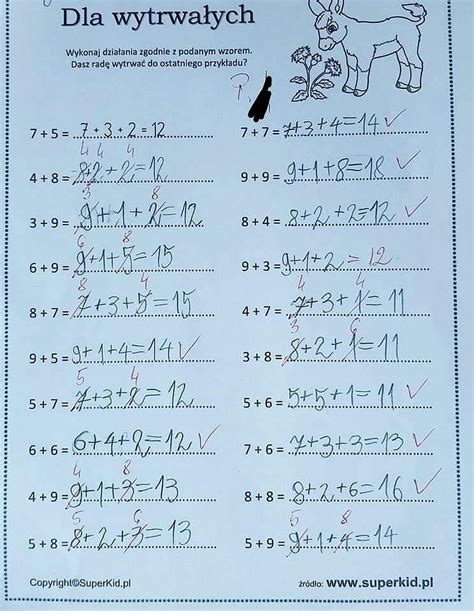 Dla wytrwałych
Wykonaj działania zgodnie z podanym wzorem.
Dasz radę wytrwać do ostatniego przykładu?
7 + 5 = 7 + 3 + 2 = 12
4 4 4
4 + 8 = 8+2+2=12
3 8
3 + 9 = 9+1+2=12
6 8
6 + 9 = 9+1+5=15
8 4
8 + 7 = 7+3+5=15
9 + 5 = 9+1+4=14 ✓
5 4
5 + 7 = 7+3+2=12
6 + 6 = 6+4+2=12 ✓
4 8
4 + 9 = 9+1+3=13
5 + 8 = 8+2+3=13
7 + 7 = 7+3+4=14 ✓
9 + 9 = 9+1+8=18 ✓
8 + 4 = 8+2+2=12 ✓
9 + 3 = 9+1+2=12
4 4
4 + 7 = 7+3+1=11
3 6
3 + 8 = 8+2+1=11
5 + 6 = 5+5+1=11 ✓
7 + 6 = 7+3+3=13 ✓
8 + 8 = 8+2+6=16 ✓
5 8
5 + 9 = 9+1+4=14
Copyright©SuperKid.pl
źródło: www.superkid.pl